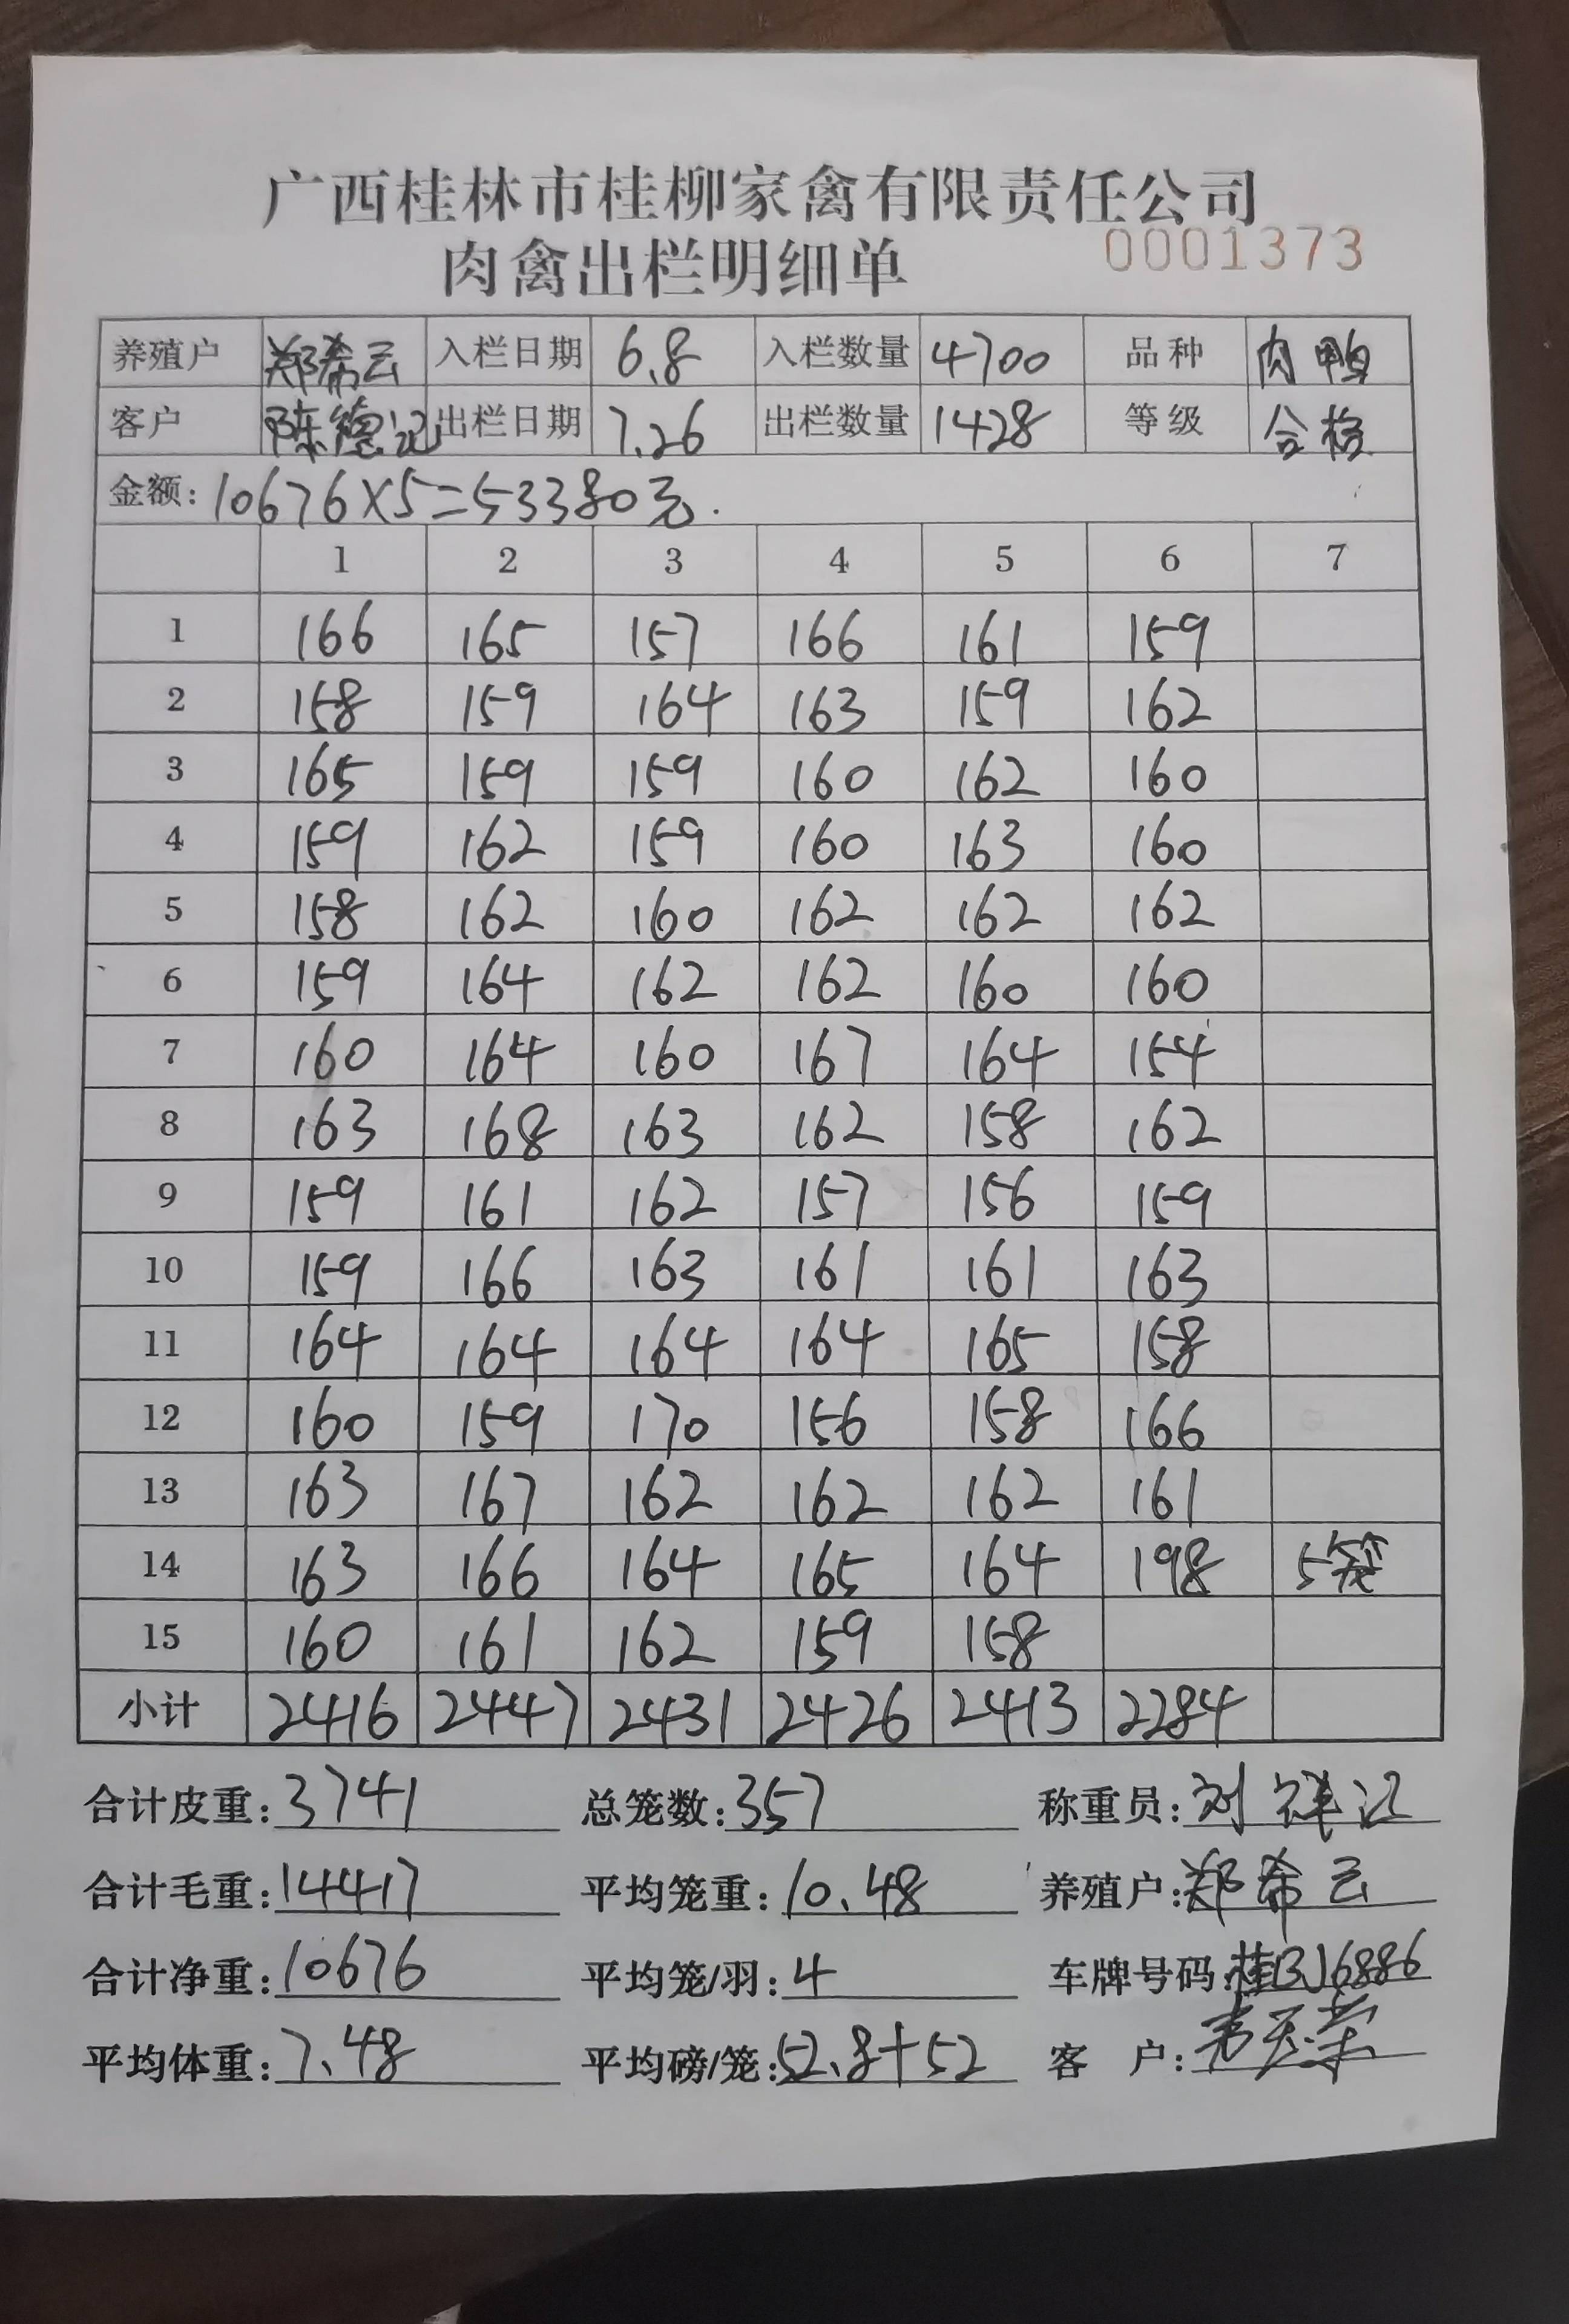 广西桂林市桂柳家禽有限责任公司
肉禽出栏明细单 0001373
养殖户 郑希云 入栏日期 6.8 入栏数量 4700 品种 肉鸭
客户 陈德记 出栏日期 7.26 出栏数量 1428 等级 合格
金额: 10676×5=53380元.
1 2 3 4 5 6 7
1 166 165 157 166 161 159
2 158 159 164 163 159 162
3 165 159 159 160 162 160
4 159 162 159 160 163 160
5 158 162 160 162 162 162
6 159 164 162 162 160 160
7 160 164 160 167 164 154
8 163 168 163 162 158 162
9 159 161 162 157 156 159
10 159 166 163 161 161 163
11 164 164 164 164 165 158
12 160 159 170 156 158 166
13 163 167 162 162 162 161
14 163 166 164 165 164 198 5笼
15 160 161 162 159 158
小计 2416 2447 2431 2426 2413 2284
合计皮重: 3741 总笼数: 357 称重员: 刘祥江
合计毛重: 14417 平均笼重: 10.48 养殖户: 郑希云
合计净重: 10676 平均笼/羽: 4 车牌号码: 桂BJ6886
平均体重: 7.48 平均磅/笼: 52.8+52 客 户: